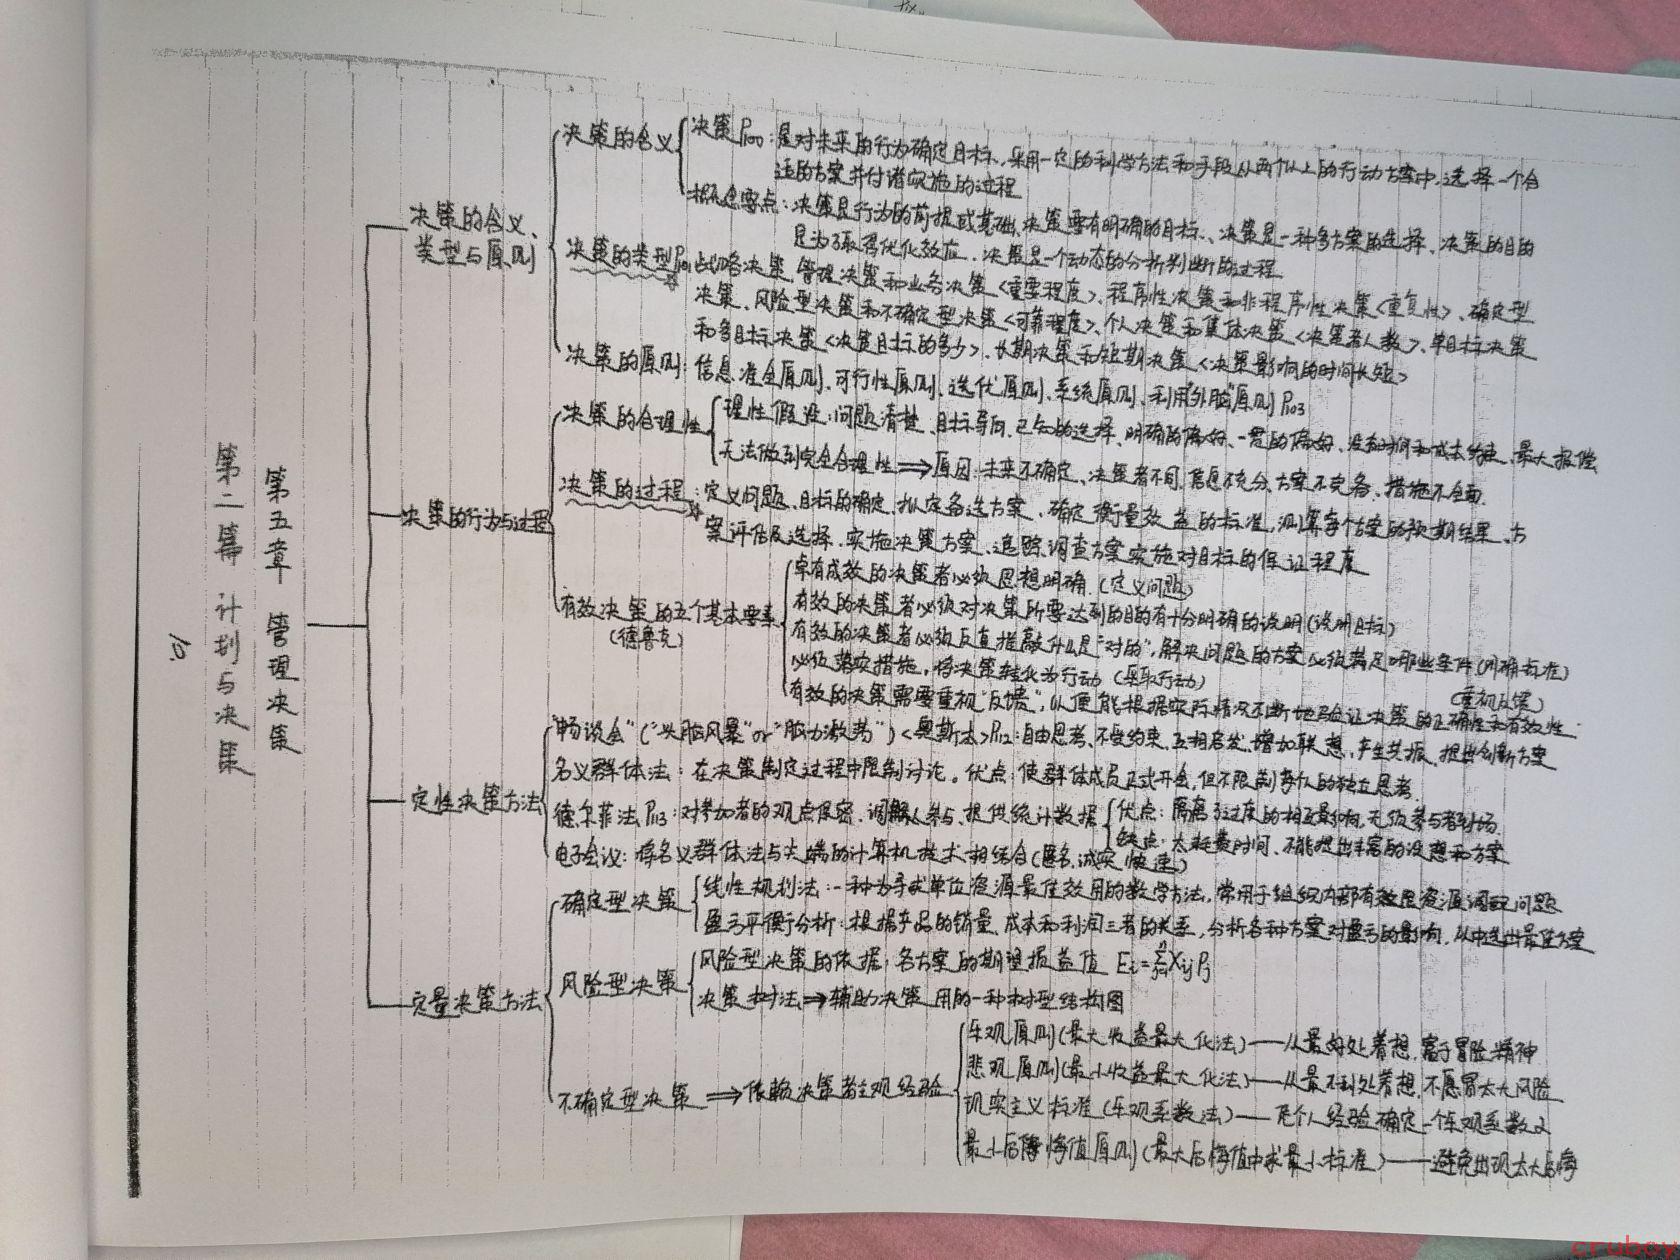 第二篇 计划与决策
第五章 管理决策
决策的含义、
类型与原则
决策的含义
决策P100：是对未来的行为确定目标，采用一定的科学方法和手段从两个以上的行动方案中，选择一个合
适的方案并付诸实施的过程
概念要点：决策是行为的前提或基础、决策要有明确的目标、决策是一种多方案的选择、决策的目的
是为了取得优化效应、决策是一个动态的分析判断的过程
决策的类型P101
战略决策、管理决策和业务决策<重要程度>、程序性决策和非程序性决策<重复性>、确定型
决策、风险型决策和不确定型决策<可靠程度>、个人决策和集体决策<决策者人数>、单目标决策
和多目标决策<决策目标的多少>、长期决策和短期决策<决策影响的时间长短>
决策的原则：信息准全原则、可行性原则、选优原则、系统原则、利用"外脑"原则P103
决策的行为与过程
决策的合理性
理性假设：问题清楚、目标导向、已知的选择、明确的偏好、一贯的偏好、没有时间和成本约束、最大报偿
无法做到完全合理性⟹原因：未来不确定、决策者不同、信息不充分、方案不完备、措施不全面.
决策的过程：定义问题、目标的确定、拟定备选方案、确定衡量效益的标准，测算每个方案的预期结果、方
案评估及选择、实施决策方案、追踪调查方案实施对目标的保证程度
有效决策的五个基本要素
(德鲁克)
卓有成效的决策者必须思想明确.(定义问题)
有效的决策者必须对决策所要达到的目的有十分明确的说明(说明目标)
有效的决策者必须反复推敲什么是"对的"，解决问题的方案必须满足哪些条件(明确标准)
必须落实措施，将决策转化为行动(采取行动)
(重视反馈)
有效的决策需要重视"反馈"，以便能根据实际情况不断地验证决策的正确性和有效性.
定性决策方法
"畅谈会"("头脑风暴"or"脑力激荡")<奥斯本>P112：自由思考、不受约束、互相启发、增加联想、产生共振、提出创新方案
名义群体法：在决策制定过程中限制讨论。优点：使群体成员正式开会，但不限制每人的独立思考.
德尔菲法P113：对参加者的观点保密、调解人参与、提供统计数据
优点：隔离了过度的相互影响，无须参与者到场.
缺点：太耗费时间、不能提出丰富的设想和方案
电子会议：将名义群体法与尖端的计算机技术相结合(匿名、诚实、快速)
定量决策方法
确定型决策
线性规划法：一种为寻求单位资源最佳效用的数学方法，常用于组织内部有效地资源调配问题
盈亏平衡分析：根据产品的销量、成本和利润三者的关系，分析各种方案对盈亏的影响，从中选出最佳方案
风险型决策
风险型决策的依据：各方案的期望损益值 Ei=∑XijPj
决策树法⟹辅助决策用的一种树型结构图
不确定型决策⟹依赖决策者主观经验
乐观原则(最大收益最大化法)——从最好处着想，富于冒险精神
悲观原则(最小收益最大化法)——从最不利处着想，不愿冒太大风险
现实主义标准(乐观系数法)——凭个人经验确定一个乐观系数α
最小后悔值原则(最大后悔值中求最小标准)——避免出现太大后悔
10
crubou